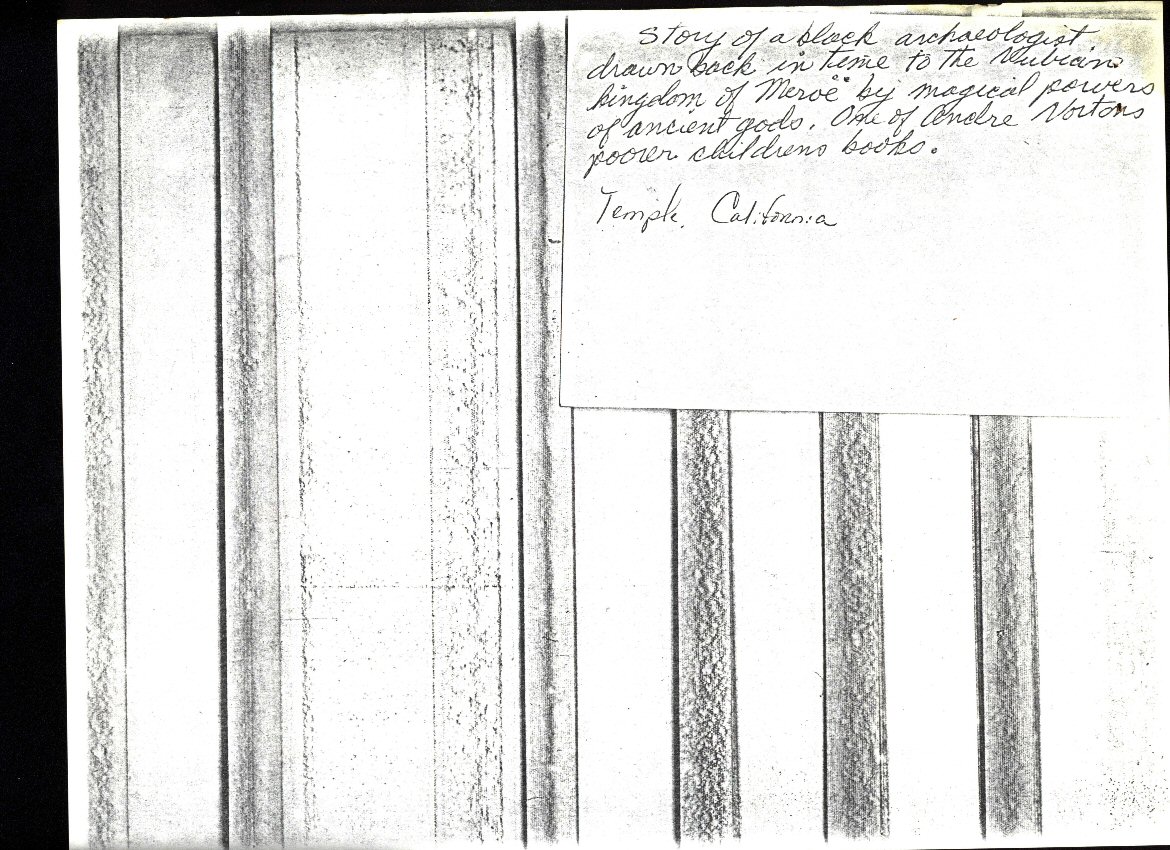 Story of a black archaeologist
drawn back in time to the Nubian
kingdom of Meroë by magical powers
of ancient gods. One of Andre Nortons
poorer childrens books.
Temple, California